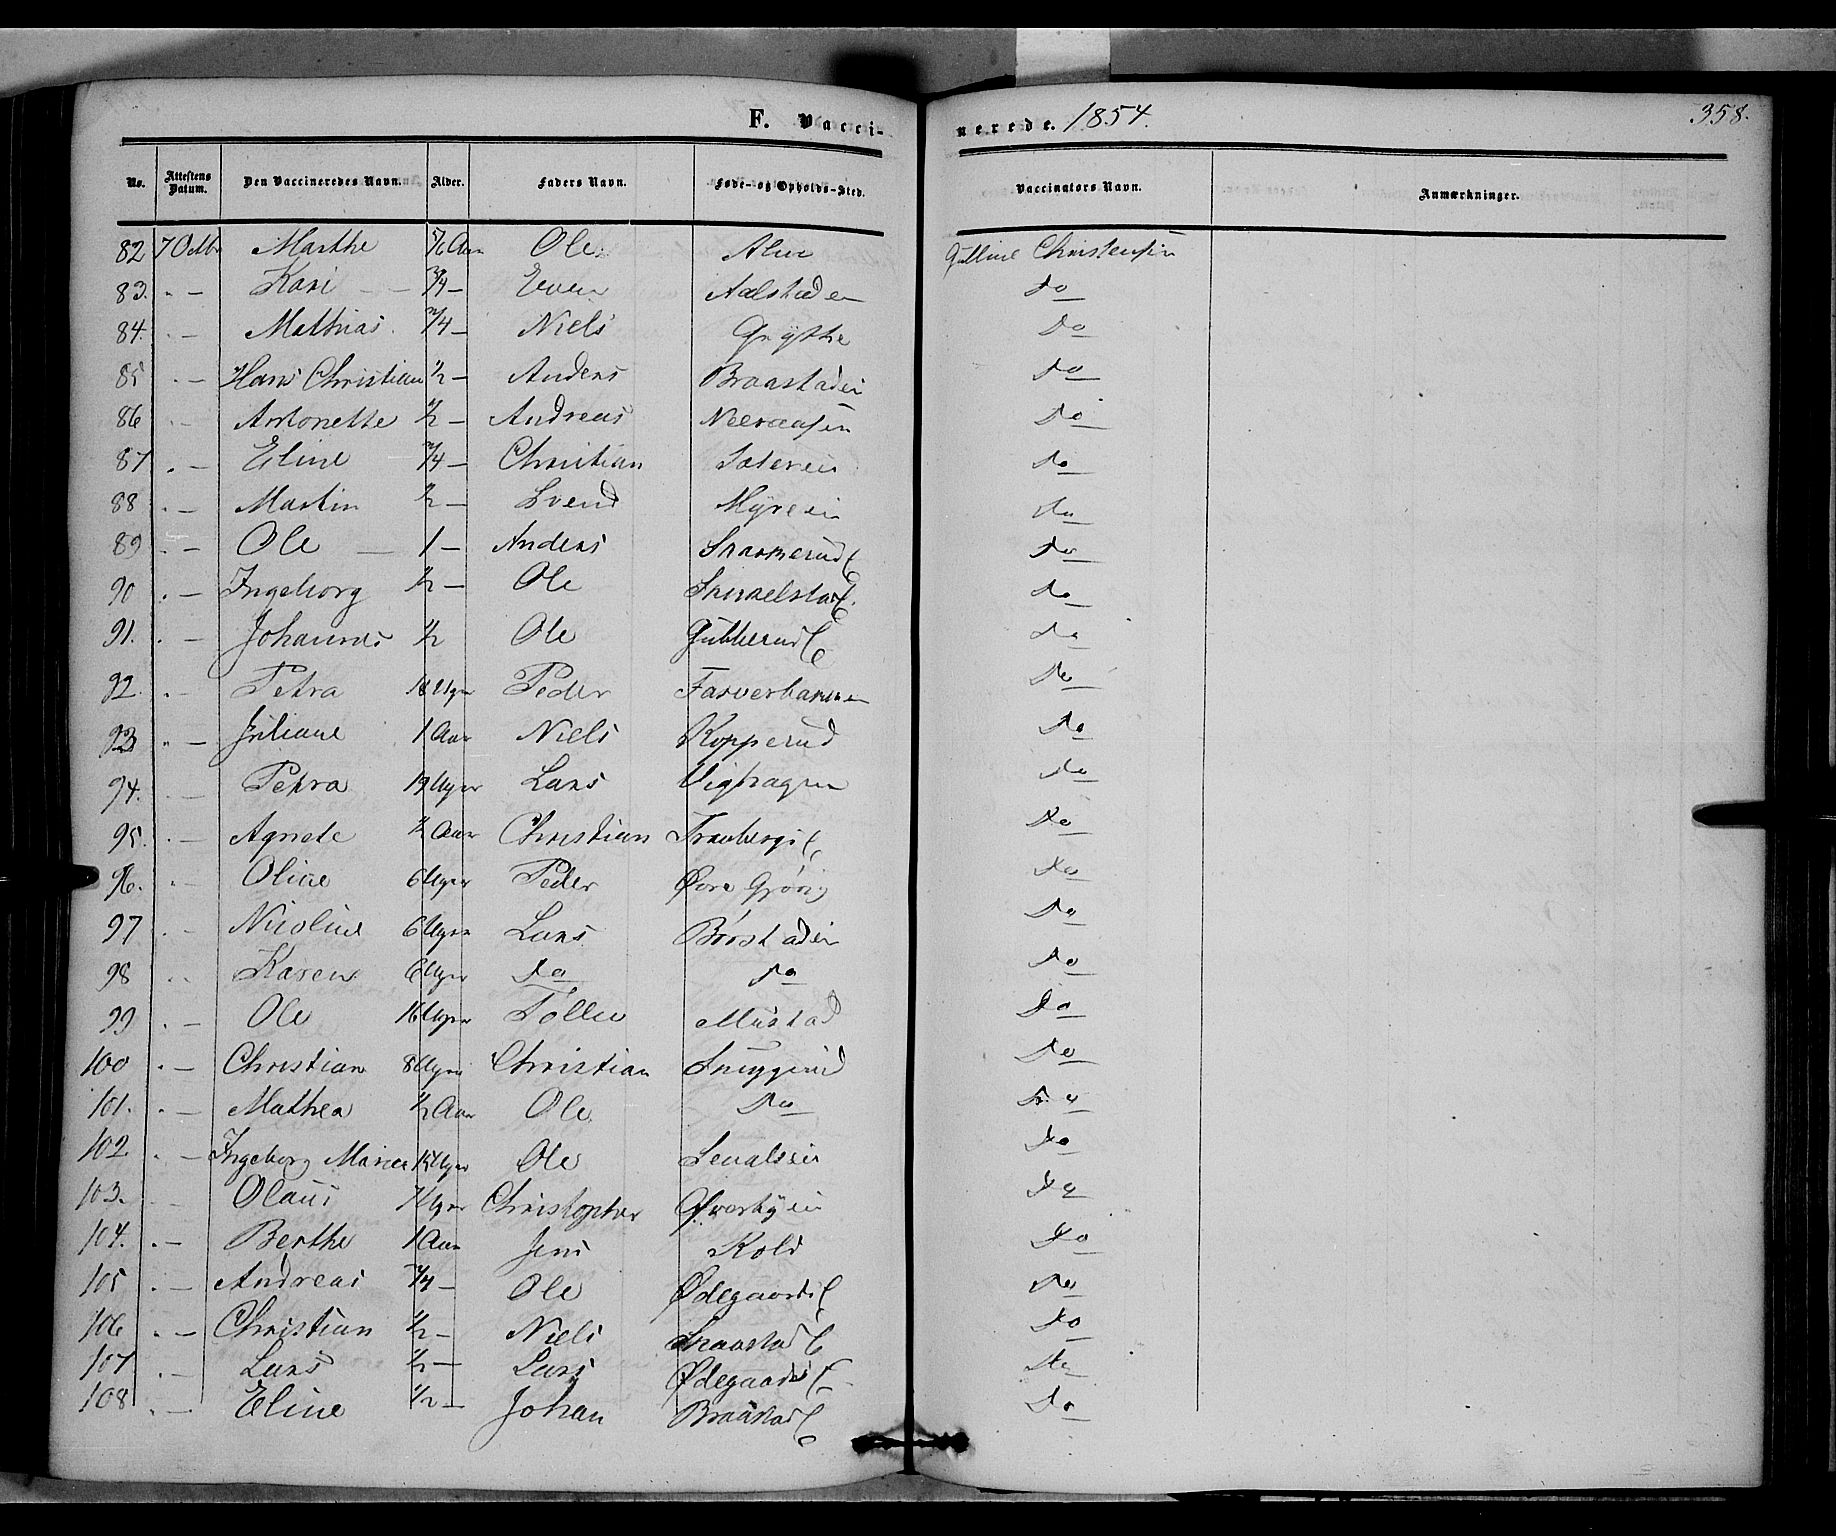 F. Vacci-
nerede. 1854.
358.
No. Attestens Datum. Den Vaccineredes Navn. Alder. Faders Navn. Føde- og Opholds-Sted. Vaccinators Navn. Anmærkninger.
82 7 Octbr Marthe Aar Ole Alm Christensen
83. " – Kari 3/4 – Even Aalstaden Do
84. " – Mathias 3/4 – Niels Grythe Do
85 " – Hans Christian 1/2 – Anders Braastaden Do
86 " – Antonette 1/2 – Andreas Do
87 " – Eline 3/4 – Christian Do
88 " – Martin 1/2 – Svend Myren Do
89 " – Ole – 1 – Anders Do
90 " – Ingeborg 1/2 – Ole Do
91. " – Johannes 1/2 Ole Do
92. " – Petra 18 Uger Peder Do
93 " – Juliane 1 Aar Niels Kopperud Do
94. " – Petra 19 Uger Lars Do
95. " – Agnete 1/2 Aar Christian Do
96. " – Oline 6 Uger Peder Do
97 " – Nicoline 6 Uger Lars Do
98 " – Karen 6 Uger Do Do Do
99 " – Ole 16 Uger Tollev Mustad Do
100 " – Christian 8 Uger Christian Do
101. " – Mathea 1/2 Aar Ole Do Do
102 " – Ingeborg Maria Uger Ole Do
103. " – Olaus Uger Christopher Øverbyen Do
104. " – Berthe 1 Aar Jens Kold Do
105 " – Andreas 3/4 – Ole Ødegaards Do
106 " – Christian 1/2 – Niels Do
107 " – Lars 1/2 – Lars Ødegaards Do
108 " – Eline 1/2 – Johan Braastad Do